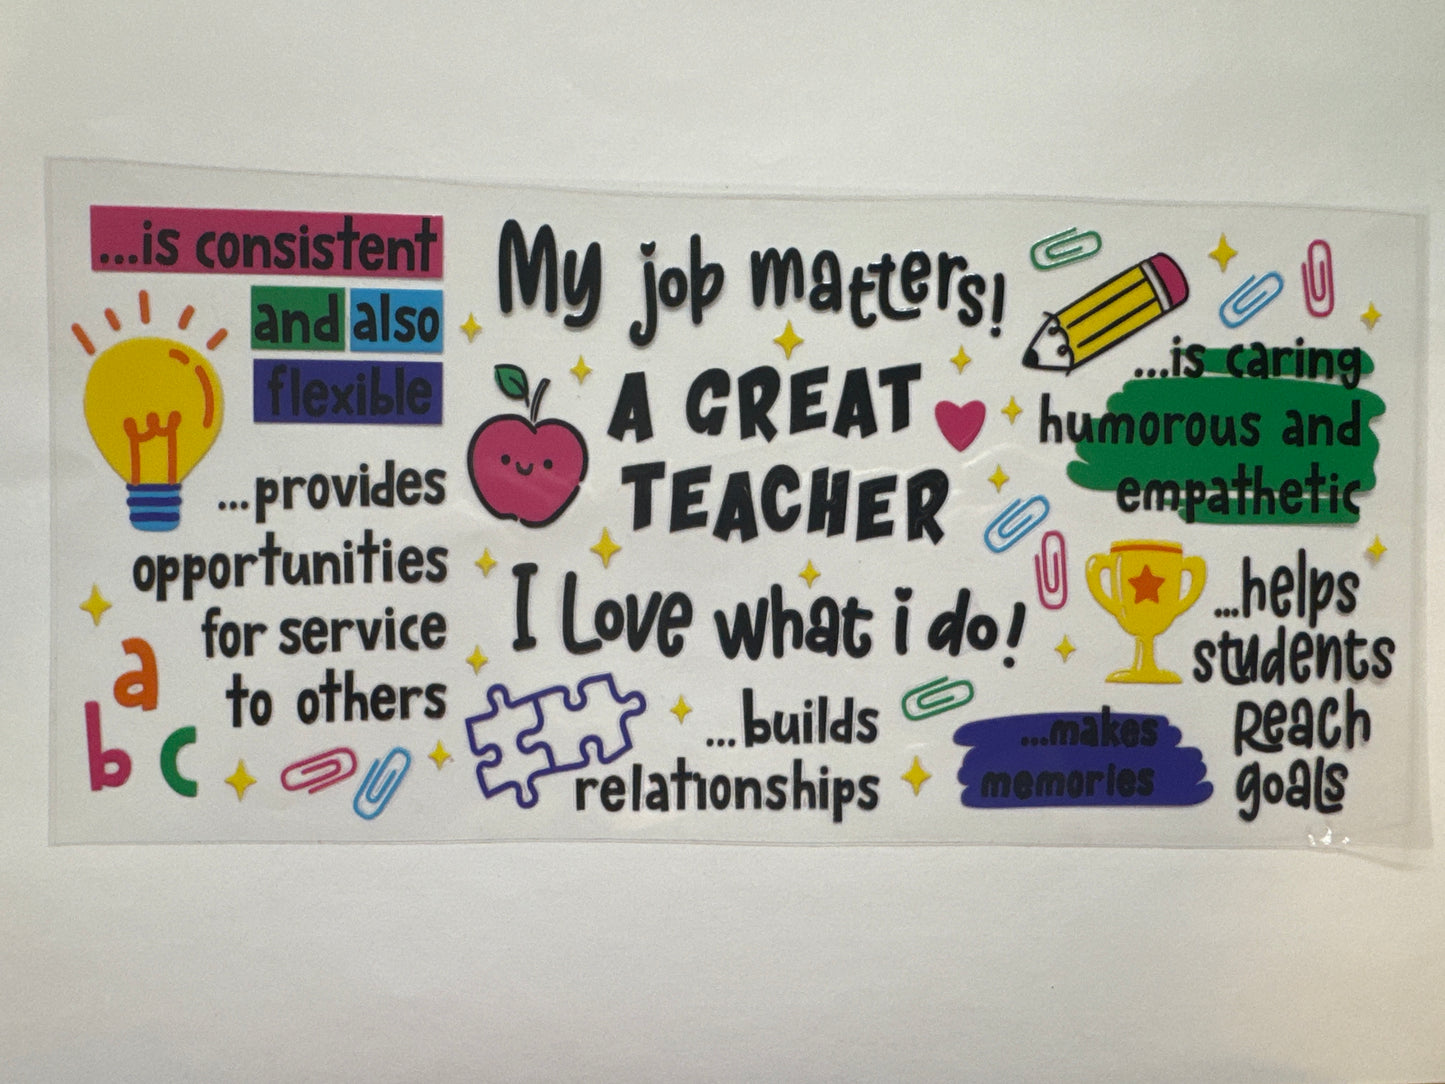 ...is consistent
and also
flexible
...provides
opportunities
for service
to others
a
b c
My job matters!
A GREAT
TEACHER
I Love what i do!
...builds
relationships
...is caring
humorous and
empathetic
...helps
students
Reach
goals
...makes
memories